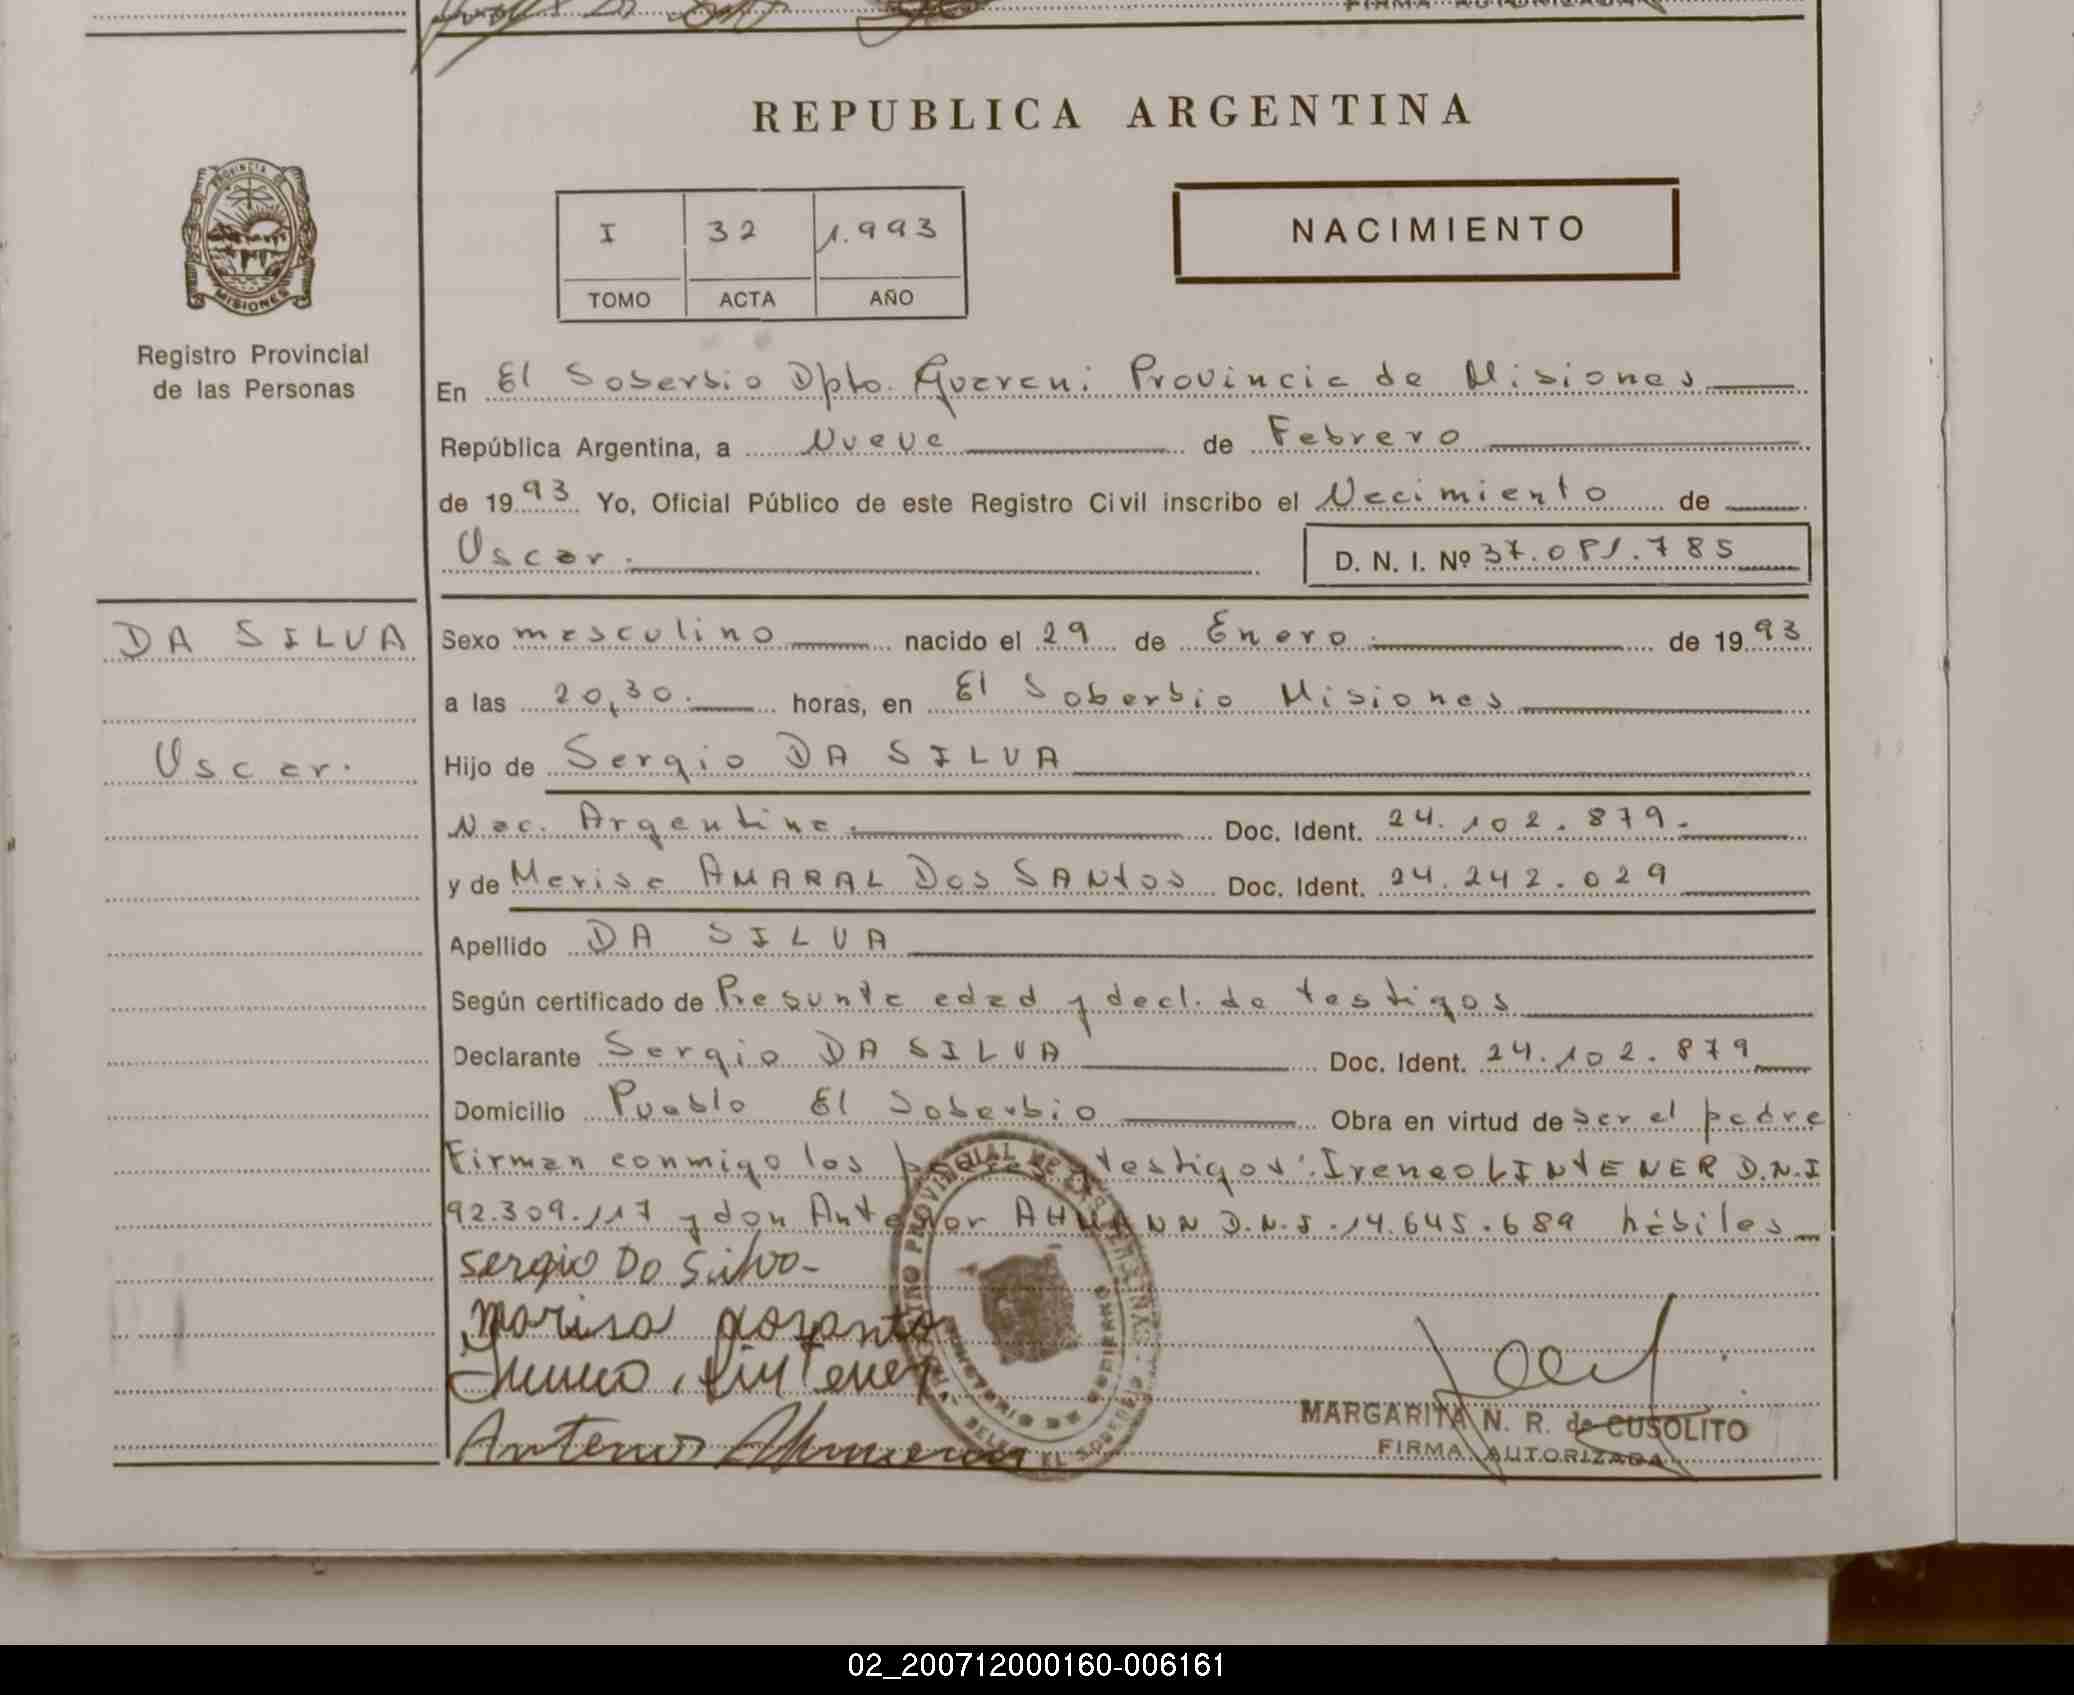 FIRMA AUTORIZADA
REPUBLICA ARGENTINA
PROVINCIA DE
MISIONES
Registro Provincial
de las Personas
I 32 1.993
TOMO ACTA AÑO
NACIMIENTO
En El Soberbio Dpto. Guarani Provincia de Misiones
República Argentina, a Nueve de Febrero
de 1993 Yo, Oficial Público de este Registro Civil inscribo el Nacimiento de
Oscar. D. N. I. Nº 37.081.785
DA SILVA
Oscar.
Sexo masculino nacido el 29 de Enero. de 1993
a las 20,30. horas, en El Soberbio Misiones
Hijo de Sergio DA SILVA
Nac. Argentina. Doc. Ident. 24.102.879.
y de Marisa AMARAL DOS SANTOS Doc. Ident. 24.242.029
Apellido DA SILVA
Según certificado de Presunta edad y decl. de testigos
Declarante Sergio DA SILVA Doc. Ident. 24.102.879
Domicilio Pueblo El Soberbio Obra en virtud de ser el padre
Firman conmigo los padres y testigos: Ireneo LINTENER D.N.I
92.309.117 y don Antenor AHMANN D.N.I. 14.645.689 hábiles
sergio Da Silva-
marisa dosanto
Ireneo Lintener
Antenor
MARGARITA N. R. de CUSOLITO
FIRMA AUTORIZADA
02_200712000160-006161